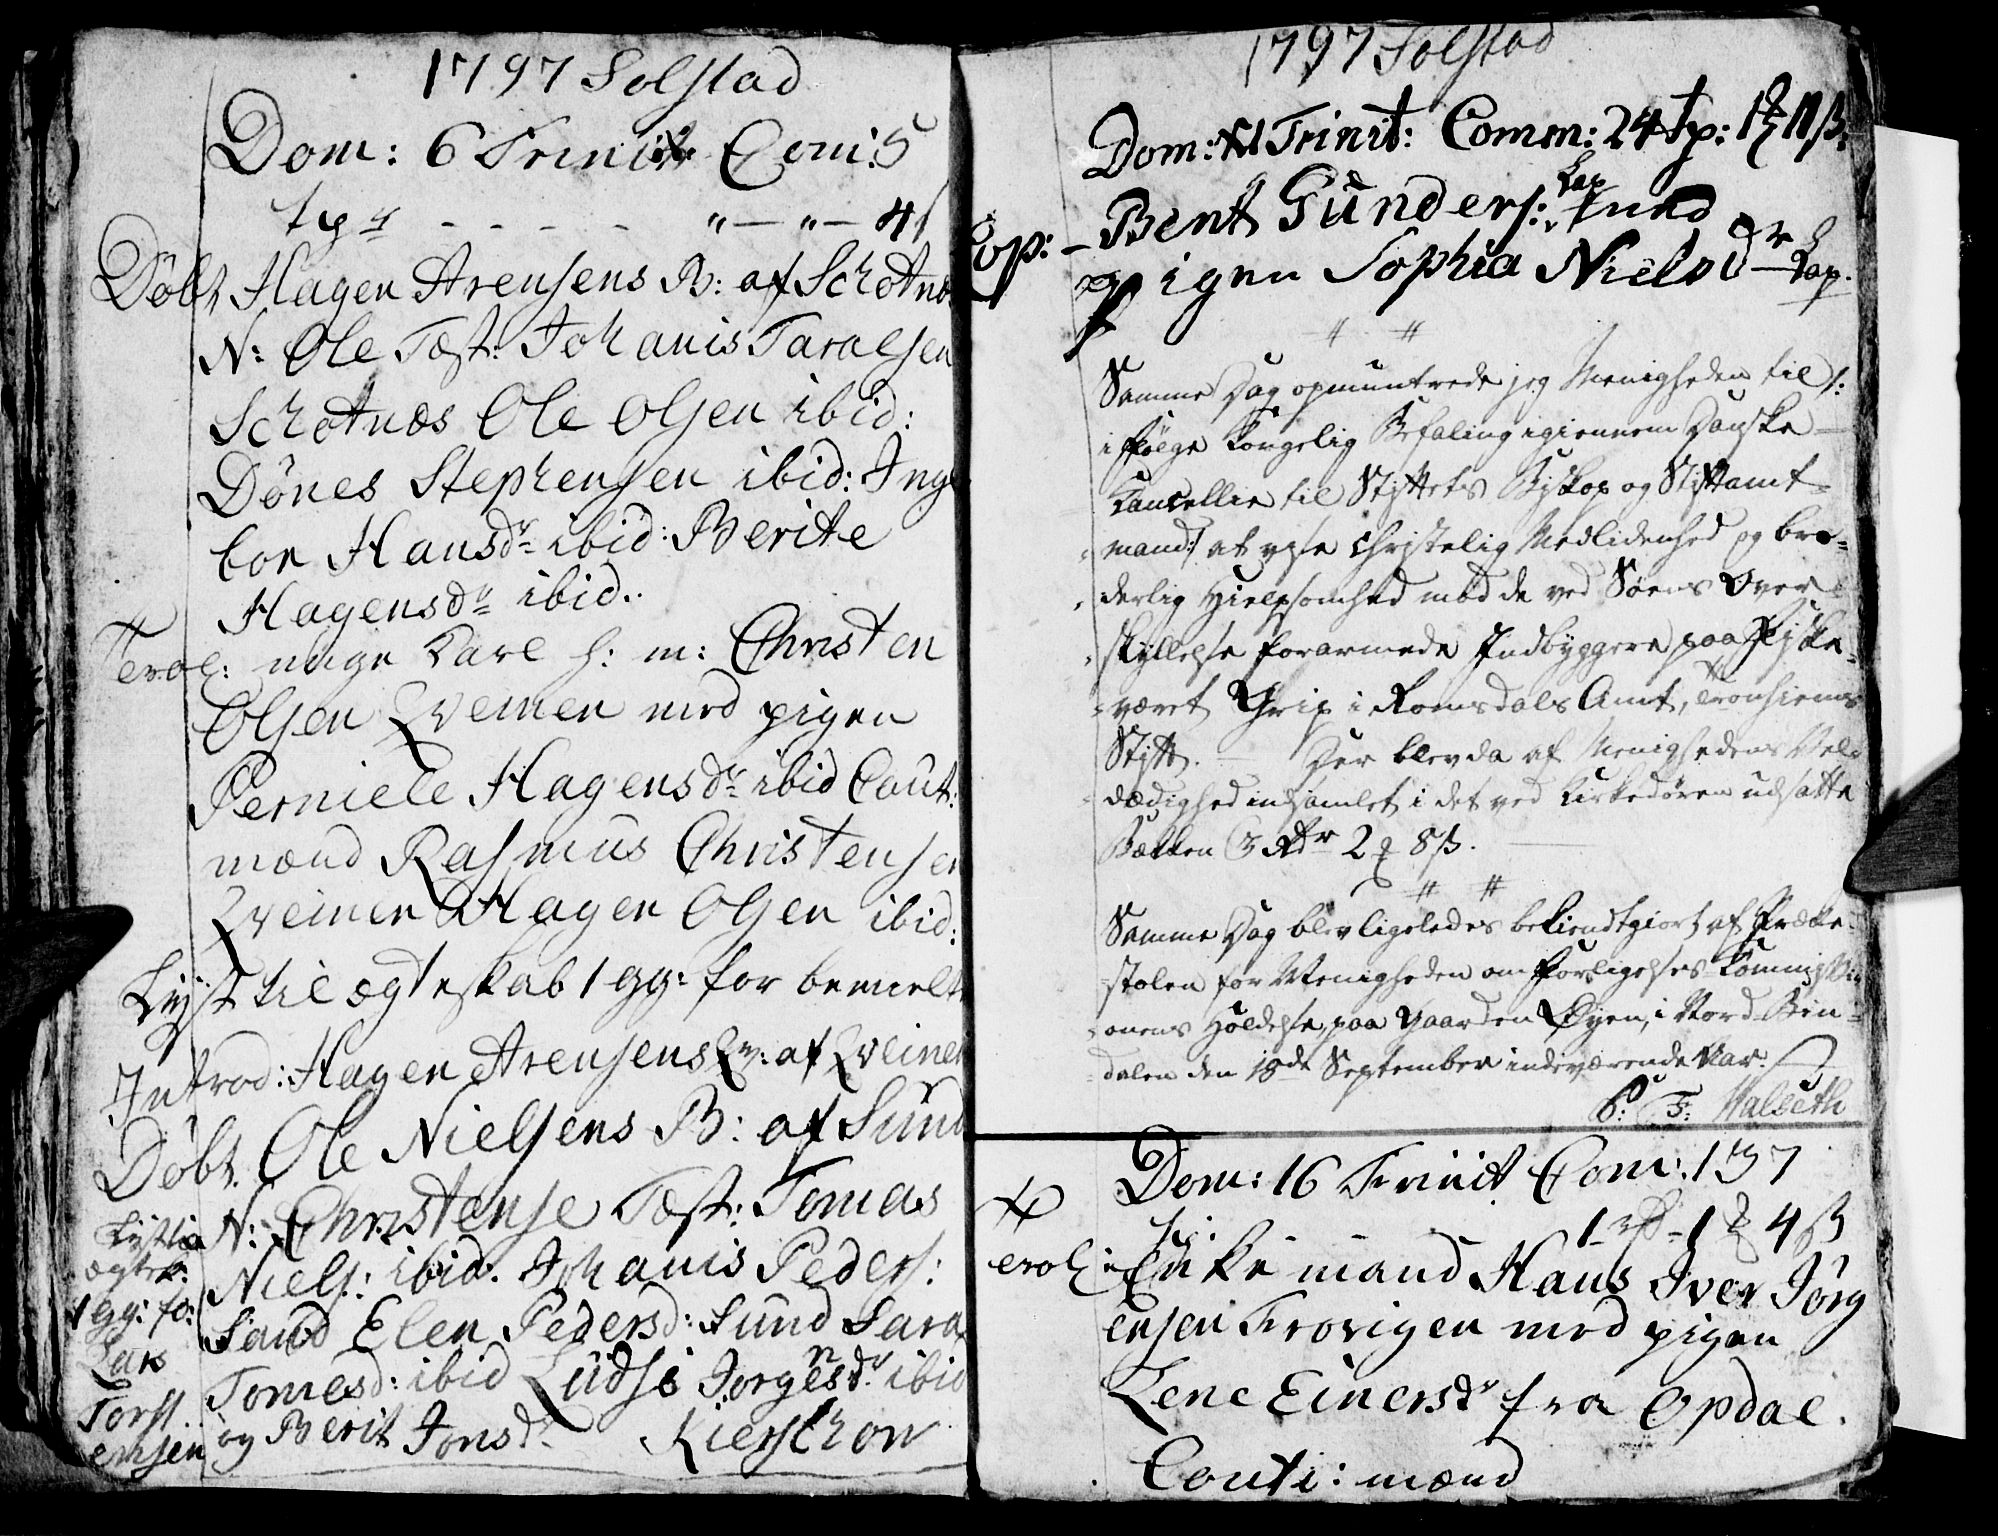 1797 Solstad
Dom: 6 Trinit Com: 5
tp r - - - - " — " — 4 s
Døbt Hagen Arensens B: af Schotnæs
N: Ole Test: Johanis Taralsen
Schotnæs Ole Olsen ibid:
Dønes Stephensen ibid: Inge
bor Hansdr ibid: Berite
Hagensdr ibid.
Trol: unge Karl h: m: Christen
Olsen Qveinen med pigen
Perniele Hagensdr ibid Caut:
mænd Rasmus Christensen
Qveinen Hagen Olsen ibid:
Lyst til ægteskab 1 gg: for bemelte
Introd: Hagen Arensens Qv: af Qveinen
Døbt. Ole Nielsens B: af Sund
N: Christense Test: Tomas
Niels: ibid. Johanis Peders:
Sand Elen Pedersd: Sund Sara
Tomesd: ibid Lüdsi Jorgensdr ibid
og Berit Jonsdr Kierschow
Lyst til
ægtesk:
1 gg: fo:
Lars
Torst
ensen
1797 Solstad
Dom: 11 Trinit: Comm: 24 Tp: 11 ß.
Cop: - Bent Gunders: Lap
pigen Sophia Nielsdr - Lap.
Samme Dag opmuntrede jeg Menigheden til /:
i følge Kongelig Befaling igiennem Danske
Cancellie til Stiftets Biskop og Stiftamt-
mand :/ at vise Christelig Medlidenhed og bro-
derlig Hielpsomhed mod de ved Søens Over-
skyllelse forarmede Indbyggere paa Fiske-
været Grip i Romsdals Amt, Tronhiems
Stift. Der blev da af Menighedens Vel-
dædighed indsamlet i det ved Kirkedøren udsatte
Bækken 3 Rdr 2 8 ß.
Samme Dag blev ligeledes bekiendtgiort af Præke-
stolen for Menigheden om Forligelses-Kommissi-
onens Holdelse paa Gaarden Øyen, i Nord-Bin-
dalen den 18de September indeværende Aar.
P: F: Halseth
Dom: 16 Trinit Com: 137
1 rd - 1 4 ß
Trol: Enke mand Hans Iver Jørg
ensen Terovigen med pigen
Lene Einersdr fra Opdal.
Couti: mænd